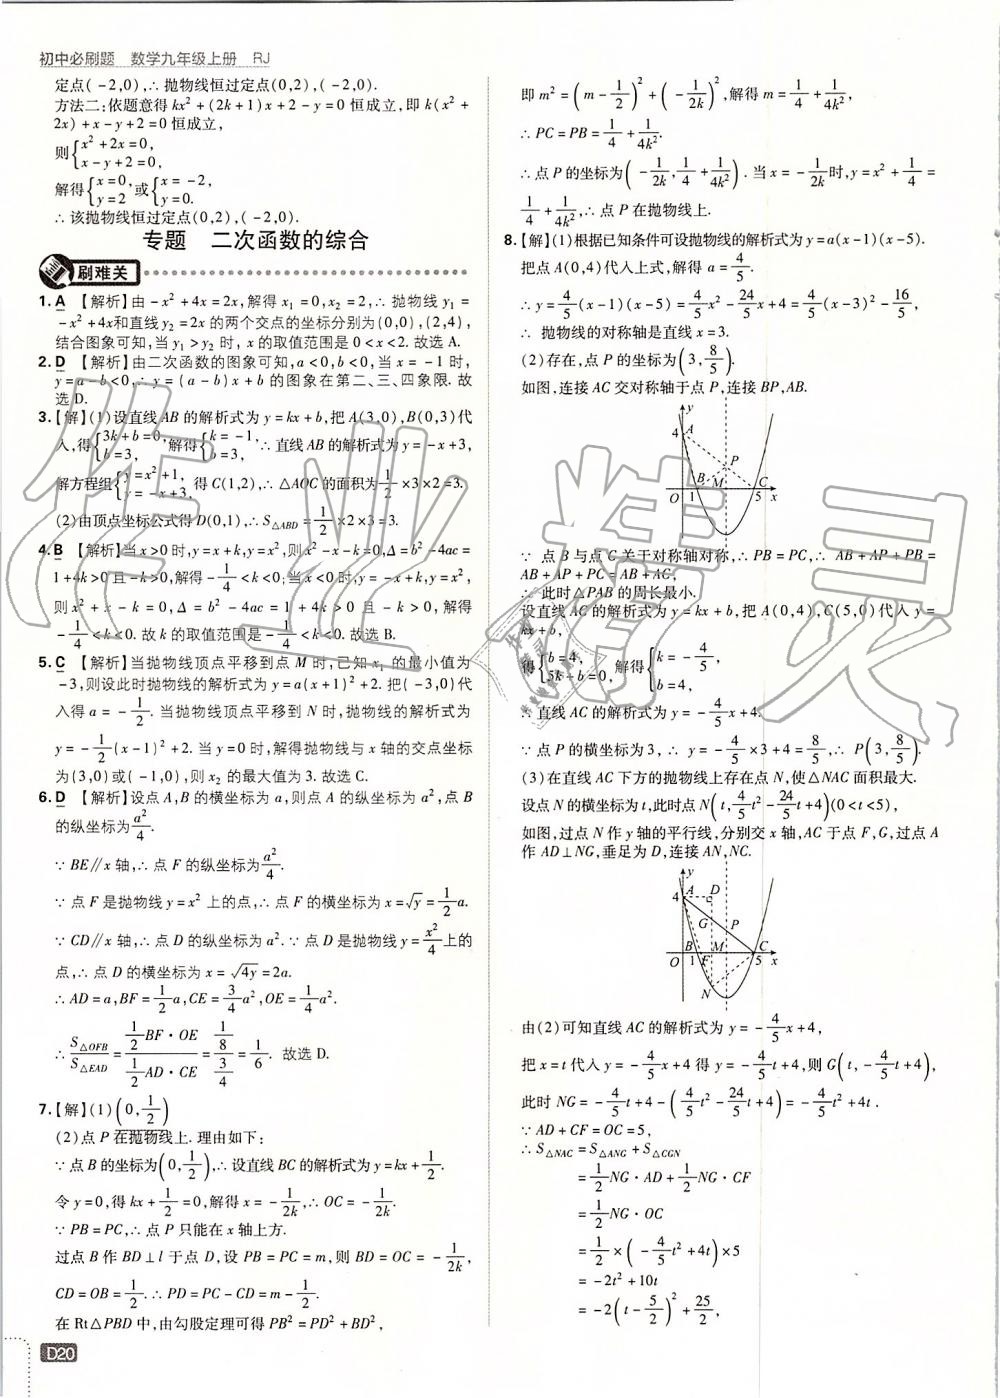 初中必刷题 数学九年级上册 RJ
定点(-2,0),∴抛物线恒过定点(0,2),(-2,0).
方法二:依题意得kx²+(2k+1)x+2-y=0恒成立,即k(x²+
2x)+x-y+2=0恒成立,
则{x²+2x=0, x-y+2=0,
解得{x=0, y=2 或{x=-2, y=0.
∴该抛物线恒过定点(0,2),(-2,0).
专题 二次函数的综合
刷难关
1. A 【解析】由-x²+4x=2x,解得x₁=0,x₂=2,∴抛物线y₁=
-x²+4x和直线y₂=2x的两个交点的坐标分别为(0,0),(2,4),
结合图象可知,当y₁>y₂时,x的取值范围是0<x<2.故选A.
2. D 【解析】由二次函数的图象可知,a<0,b<0,当x=-1时,
y=a-b<0,∴y=(a-b)x+b的图象在第二、三、四象限.故
选D.
3.【解】(1)设直线AB的解析式为y=kx+b,把A(3,0),B(0,3)代
入,得{3k+b=0, b=3, 解得{k=-1, b=3, ∴直线AB的解析式为y=-x+3,
解方程组{y=x²+1, y=-x+3, 得C(1,2),∴△AOC的面积为1/2×3×2=3.
(2)由顶点坐标公式得D(0,1),∴S△ABD=1/2×2×3=3.
4. B 【解析】当x>0时,y=x+k,y=x²,则x²-x-k=0,Δ=b²-4ac=
1+4k>0且-k>0,解得-1/4<k<0;当x≤0时,y=-x+k,y=x²,
则x²+x-k=0,Δ=b²-4ac=1+4k>0且-k>0,解得
-1/4<k<0.故k的取值范围是-1/4<k<0.故选B.
5. C 【解析】当抛物线顶点平移到点M时,已知x₁的最小值为
-3,则设此时抛物线的解析式为y=a(x+1)²+2.把(-3,0)代
入得a=-1/2.当抛物线顶点平移到N时,抛物线的解析式为
y=-1/2(x-1)²+2.当y=0时,解得抛物线与x轴的交点坐标
为(3,0)或(-1,0),则x₂的最大值为3.故选C.
6. D 【解析】设点A,B的横坐标为a,则点A的纵坐标为a²,点B
的纵坐标为a²/4.
∵BE∥x轴,∴点F的纵坐标为a²/4.
∵点F是抛物线y=x²上的点,∴点F的横坐标为x=√y=1/2a.
∵CD∥x轴,∴点D的纵坐标为a².∵点D是抛物线y=x²/4上的
点,∴点D的横坐标为x=√4y=2a.
∴AD=a,BF=1/2a,CE=3/4a²,OE=1/4a².
∴S△OFB/S△EAD=(1/2BF·OE)/(1/2AD·CE)=(1/8)/(3/4)=1/6.故选D.
7.【解】(1)(0,1/2)
(2)点P在抛物线上.理由如下:
∵点B的坐标为(0,1/2),∴设直线BC的解析式为y=kx+1/2.
令y=0,得kx+1/2=0,解得x=-1/2k,∴OC=-1/2k.
∵PB=PC,∴点P只能在x轴上方.
过点B作BD⊥l于点D,设PB=PC=m,则BD=OC=-1/2k,
CD=OB=1/2.∴PD=PC-CD=m-1/2.
在Rt△PBD中,由勾股定理可得PB²=PD²+BD²,
D20
即m²=(m-1/2)²+(-1/2k)²,解得m=1/4+1/4k²,
∴PC=PB=1/4+1/4k².
∴点P的坐标为(-1/2k,1/4+1/4k²).当x=-1/2k时,y=x²+1/4=
1/4+1/4k²,∴点P在抛物线上.
8.【解】(1)根据已知条件可设抛物线的解析式为y=a(x-1)(x-5).
把点A(0,4)代入上式,解得a=4/5.
∴y=4/5(x-1)(x-5)=4/5x²-24/5x+4=4/5(x-3)²-16/5,
∴抛物线的对称轴是直线x=3.
(2)存在,点P的坐标为(3,8/5).
如图,连接AC交对称轴于点P,连接BP,AB.
y
4 A
P
B M C
O 1 5 x
∵点B与点C关于对称轴对称,∴PB=PC,∴AB+AP+PB=
AB+AP+PC=AB+AC,
∴此时△PAB的周长最小.
设直线AC的解析式为y=kx+b,把A(0,4),C(5,0)代入y=
kx+b,
得{b=4, 5k+b=0, 解得{k=-4/5, b=4,
∴直线AC的解析式为y=-4/5x+4.
∵点P的横坐标为3,∴y=-4/5×3+4=8/5,∴P(3,8/5).
(3)在直线AC下方的抛物线上存在点N,使△NAC面积最大.
设点N的横坐标为t,此时点N(t,4/5t²-24/5t+4)(0<t<5),
如图,过点N作y轴的平行线,分别交x轴,AC于点F,G,过点A
作AD⊥NG,垂足为D,连接AN,NC.
y
4 A D
G P
B M C
O 1 F 5 x
N
由(2)可知直线AC的解析式为y=-4/5x+4,
把x=t代入y=-4/5x+4得y=-4/5t+4,则G(t,-4/5t+4),
此时NG=-4/5t+4-(4/5t²-24/5t+4)=-4/5t²+4t.
∵AD+CF=OC=5,
∴S△NAC=S△ANG+S△CGN
=1/2NG·AD+1/2NG·CF
=1/2NG·OC
=1/2×(-4/5t²+4t)×5
=-2t²+10t
=-2(t-5/2)²+25/2,
作业精灵